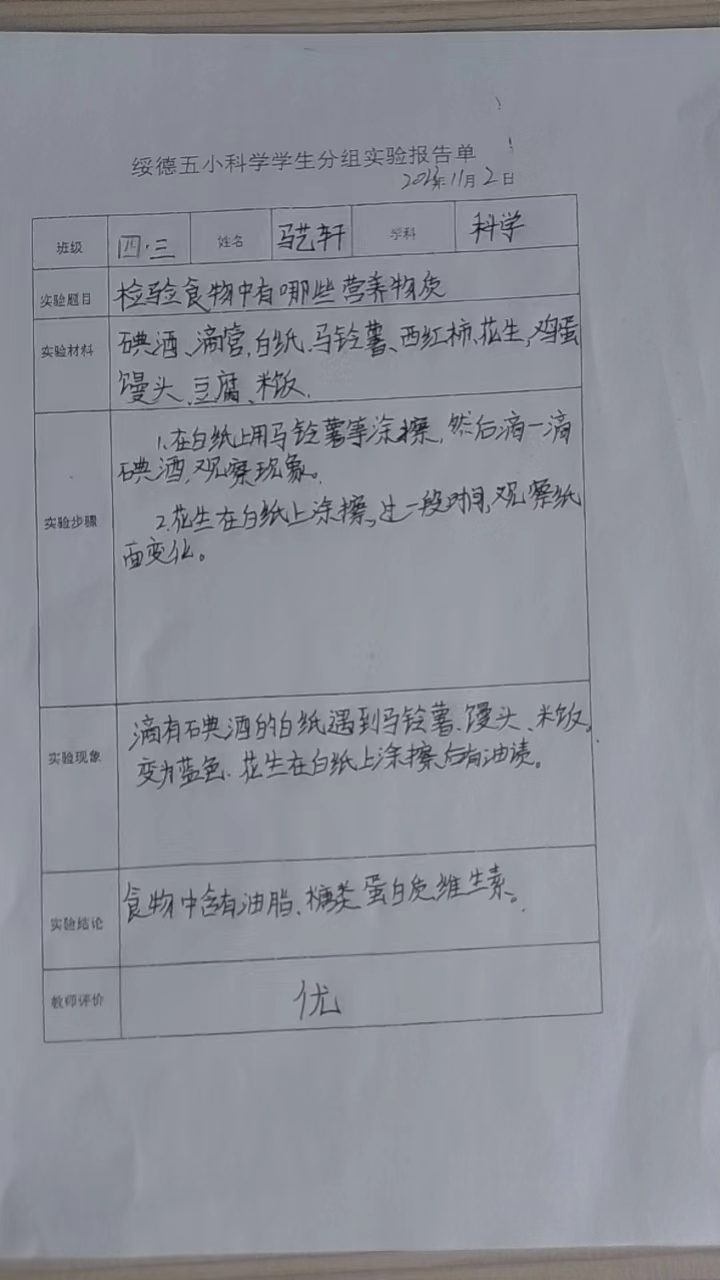 绥德五小科学学生分组实验报告单
年11月2日
班级 四.三 姓名 马艺轩 学科 科学
实验题目 检验食物中有哪些营养物质
实验材料 碘酒、滴管,白纸.马铃薯、西红柿、花生,鸡蛋
馒头、豆腐、米饭.
实验步骤 1.在白纸上用马铃薯等涂擦,然后滴一滴
碘酒,观察现象。
2.花生在白纸上涂擦,过一段时间,观察纸
面变化。
实验现象 滴有碘酒的白纸遇到马铃薯、馒头、米饭,
变为蓝色.花生在白纸上涂擦后有油渍。
实验结论 食物中含有油脂、糖类蛋白质维生素。
教师评价 优